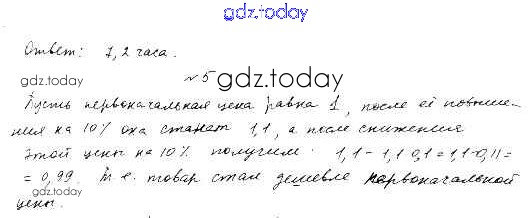 gdz.today
Ответ: 7,2 часа.
№5
gdz.today
Пусть первоначальная цена равна 1, после её повыше-
ния на 10% она станет 1,1, а после снижения
этой цены на 10% получим: 1,1 - 1,1·0,1 = 1,1-0,11=
= 0,99. Т.е. товар стал дешевле первоначальной
цены.
gdz.today
gdz.today
gdz.today